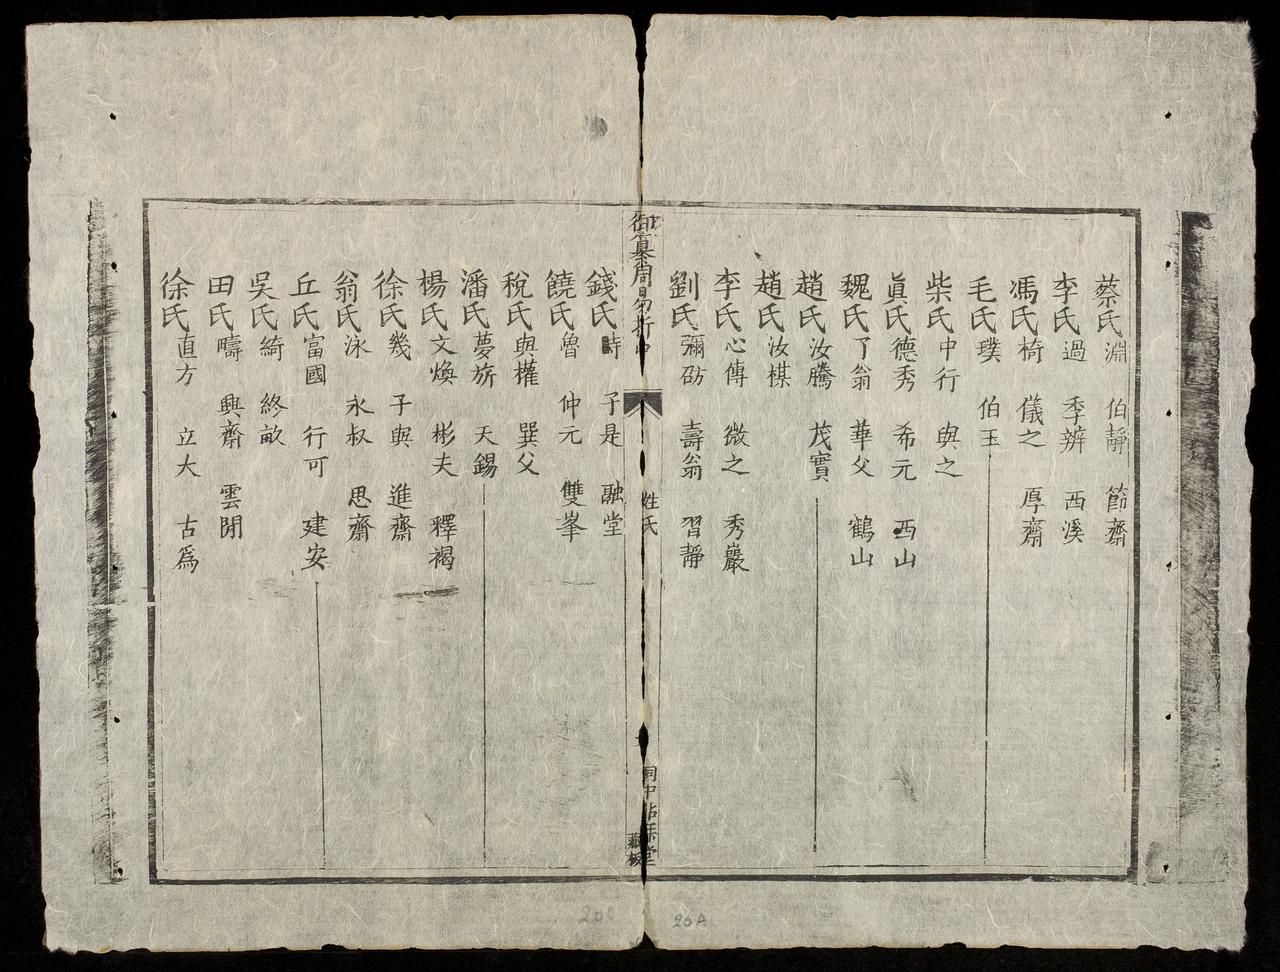 蔡氏淵 伯靜 節齋
李氏過 季辨 西溪
馮氏椅 儀之 厚齋
毛氏璞 伯玉
柴氏中行 與之
眞氏德秀 希元 西山
魏氏了翁 華父 鶴山
趙氏汝騰 茂實
趙氏汝楳
李氏心傳 微之 秀巖
劉氏彌邵 壽翁 習靜
御纂周易折中
姓氏
藏板
錢氏時 子是 融堂
饒氏魯 仲元 雙峯
稅氏與權 巽父
潘氏夢旂 天錫
楊氏文煥 彬夫 釋褐
徐氏幾 子與 進齋
翁氏泳 永叔 思齋
丘氏富國 行可 建安
吳氏綺 終畝
田氏疇 興齋 雲閒
徐氏直方 立大 古爲
20A